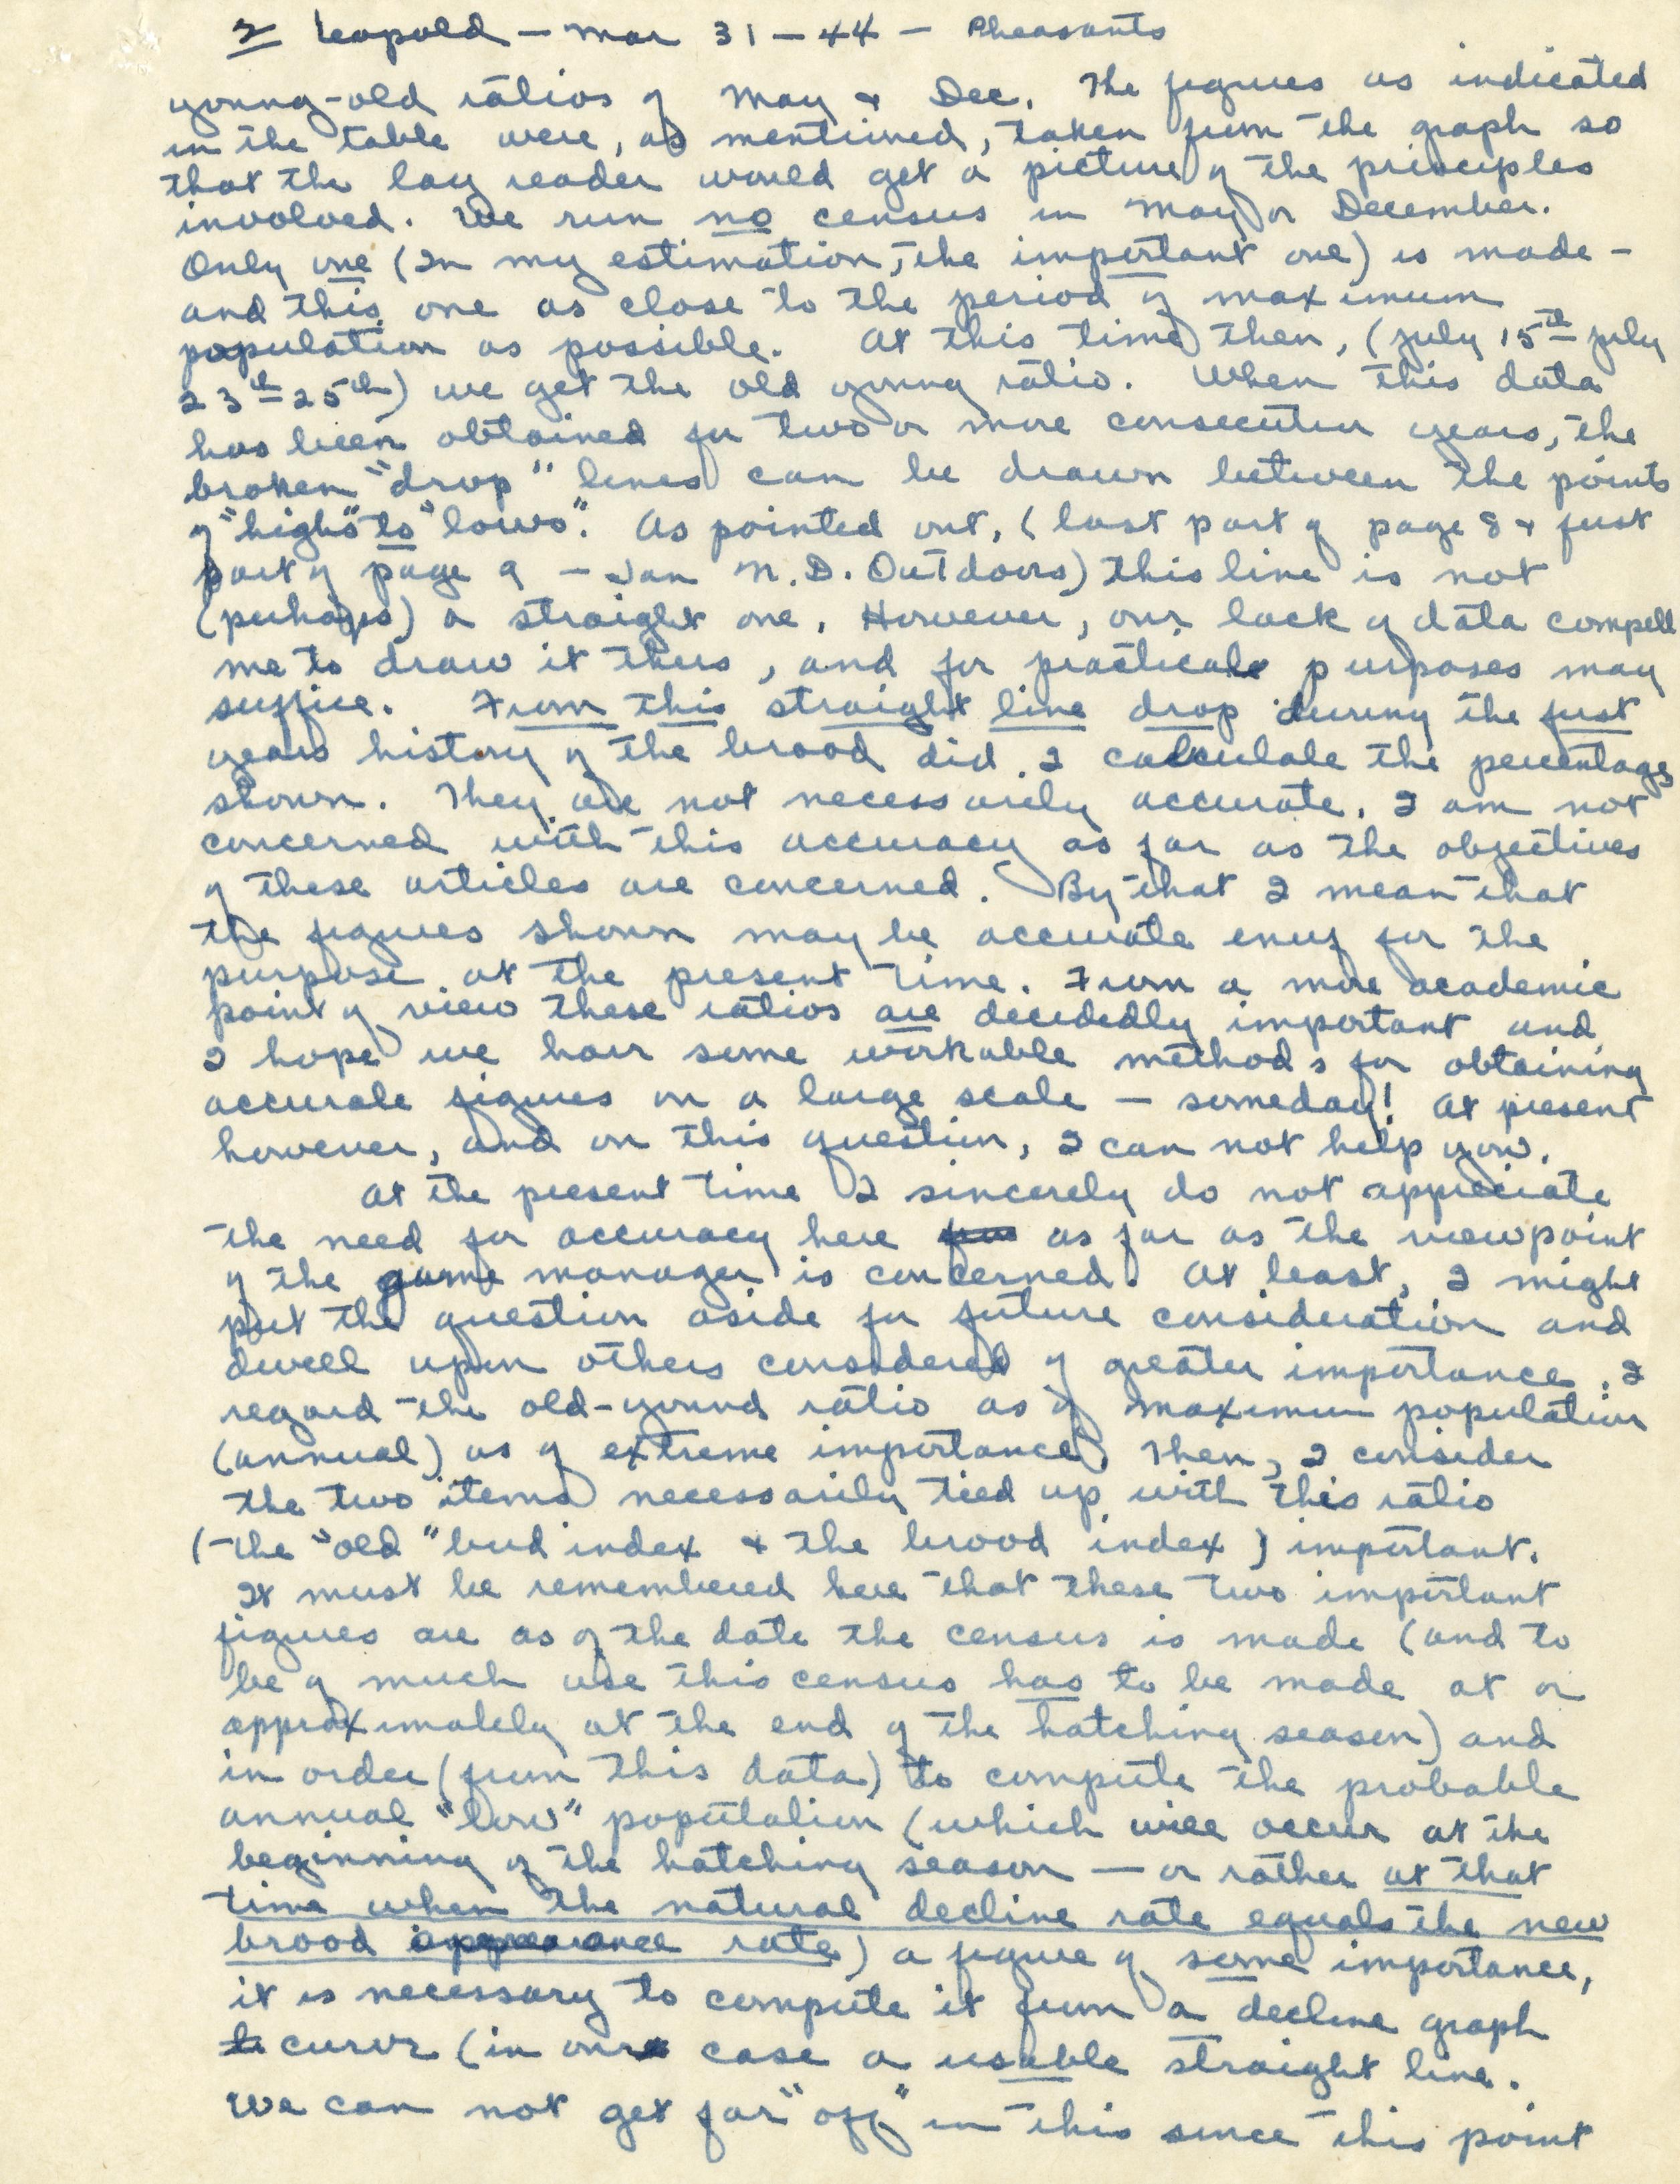 2 Leopold - Mar 31 - 44 - Pheasants
young-old ratios of May & Dec. The figures as indicated
in the table were, as mentioned, taken from the graph so
that the lay reader would get a picture of the principles
involved. We run no census in May or December.
Only one (in my estimation, the important one) is made -
and this one as close to the period of maximum
population as possible. At this time then, (July 15th - July
23th - 25th) we get the old young ratio. When this data
has been obtained for two or more consecutive years, the
broken "drop" lines can be drawn between the points
of "highs" to "lows". As pointed out, (last part of page 8 & first
part of page 9 - Jan N.D. Outdoors) this line is not
(perhaps) a straight one. However, our lack of data compell
me to draw it thus, and for practical purposes may
suffice. From this straight line drop during the first
years history of the brood did I calculate the percentages
shown. They are not necessarily accurate. I am not
concerned with this accuracy as far as the objectives
of these articles are concerned. By that I mean that
the figures shown may be accurate enuf for the
purpose at the present time. From a more academic
point of view these ratios are decidedly important and
I hope we have some workable methods for obtaining
accurate figures on a large scale - someday! At present
however, and on this question, I can not help you.
At the present time I sincerely do not appreciate
the need for accuracy here as far as the viewpoint
of the game manager is concerned. At least, I might
put the question aside for future consideration and
dwell upon others considered of greater importance. I
regard the old-yound ratio as of maximum population
(annual) as of extreme importance. Then, I consider
the two items necessarily tied up with this ratio
(the "old" bird index & the brood index) important.
It must be remembered here that these two important
figures are as of the date the census is made (and to
be of much use this census has to be made at or
approximately at the end of the hatching season) and
in order (from this data) to compute the probable
annual "low" population (which will occur at the
beginning of the hatching season - or rather at that
time when the natural decline rate equals the new
brood appearance rate) a figure of some importance,
it is necessary to compute it from a decline graph
curve (in our case a usable straight line.
We can not get far "off" in this since this point